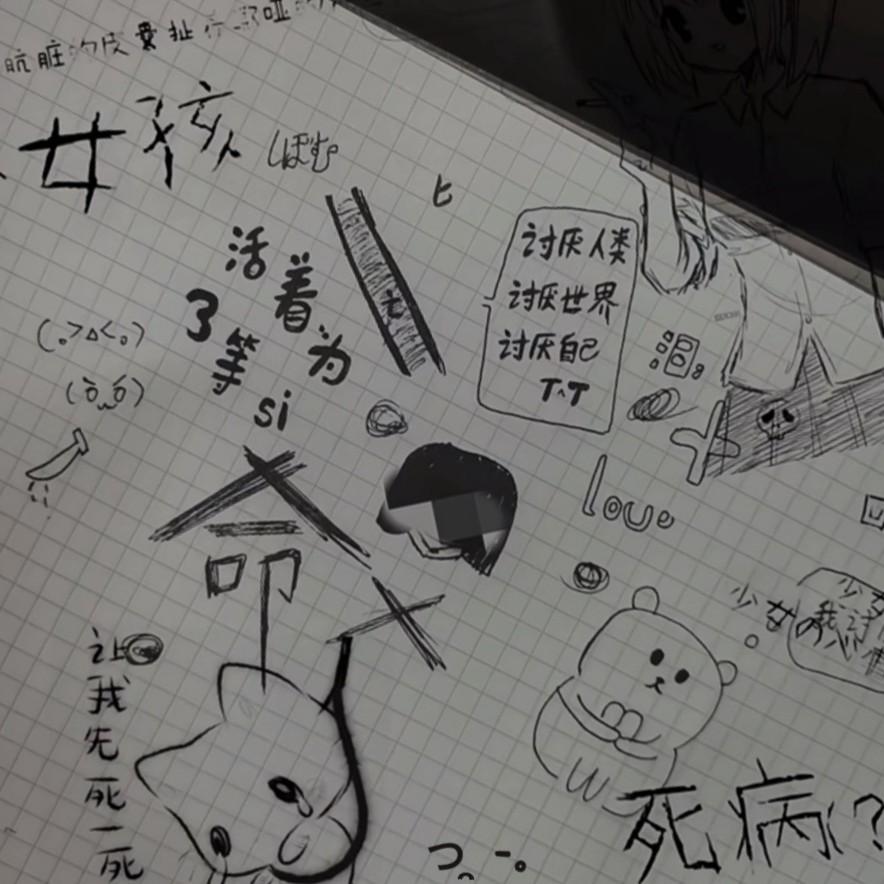 肮脏的皮囊扯
女孩
しぼむ
ヒ
活着
了
等为
si
讨厌人类
讨厌世界
讨厌自己
T^T
(｡>△<｡)
泪
love
命
让
我
先
死
一
死
少女の
死病!?